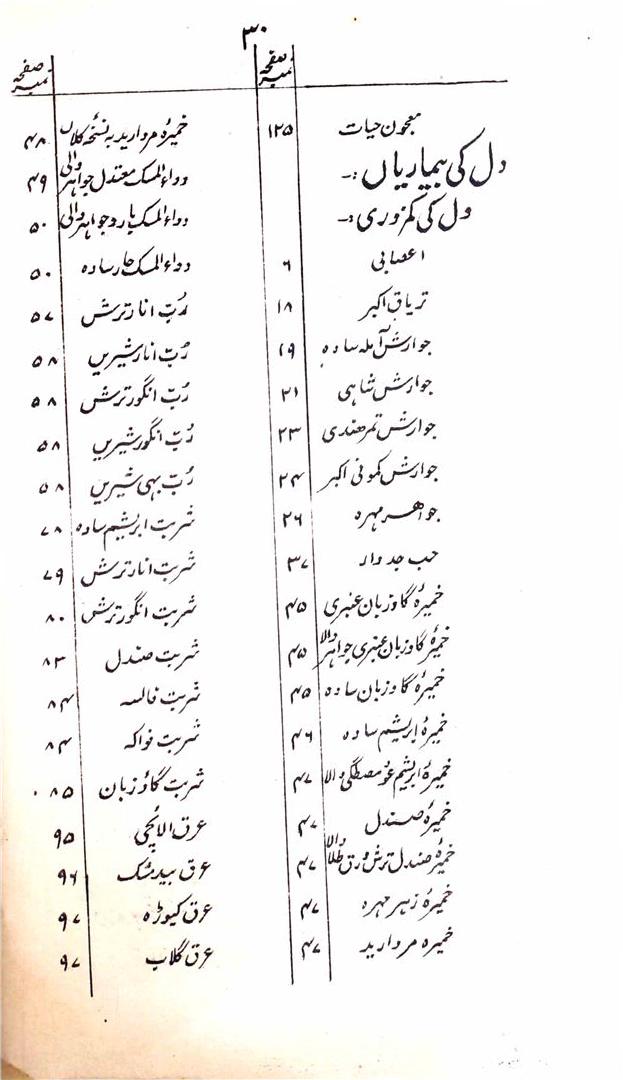 ۳۰
صفحہ نمبر
معجون حیات ۱۲۵
دل کی بیماریاں :۔
دل کی کمزوری :۔
اعصابی ۶
تریاق اکبر ۱۸
جوارش آملہ سادہ ۱۹
جوارش شاہی ۲۱
جوارش تمر ھندی ۲۳
جوارش کمونی اکبر ۲۴
جواھر مہرہ ۲۶
حب جدوار ۳۷
خمیرۂ گاوزبان عنبری ۴۵
خمیرۂ گاوزبان عنبری جواہر والا ۴۵
خمیرۂ گاوزبان سادہ ۴۵
خمیرۂ ابریشم سادہ ۴۶
خمیرۂ ابریشم عود مصطگی والا ۴۷
خمیرۂ صندل ۴۷
خمیرۂ صندل ترش ورق طلا والا ۴۷
خمیرۂ زہر مہرہ ۴۷
خمیرہ مروارید ۴۷
صفحہ نمبر
خمیرۂ مروارید بہ نسخہ کلاں ۴۸
دواء المسک معتدل جواہر والی ۴۹
دواء المسک بارد جواہر والی ۵۰
دواء المسک حار سادہ ۵۰
رُبّ انار ترش ۵۷
رُبّ انار شیریں ۵۸
رُبّ انگور ترش ۵۸
رُبّ انگور شیریں ۵۸
رُبّ بہی شیریں ۵۸
شربت ابریشم سادہ ۷۸
شربت انار ترش ۷۹
شربت انگور ترش ۸۰
شربت صندل ۸۳
شربت فالسہ ۸۴
شربت فواکہ ۸۴
شربت گاؤزبان ۸۵
عرق الائچی ۹۵
عرق بیدمشک ۹۶
عرق کیوڑہ ۹۷
عرق گلاب ۹۷